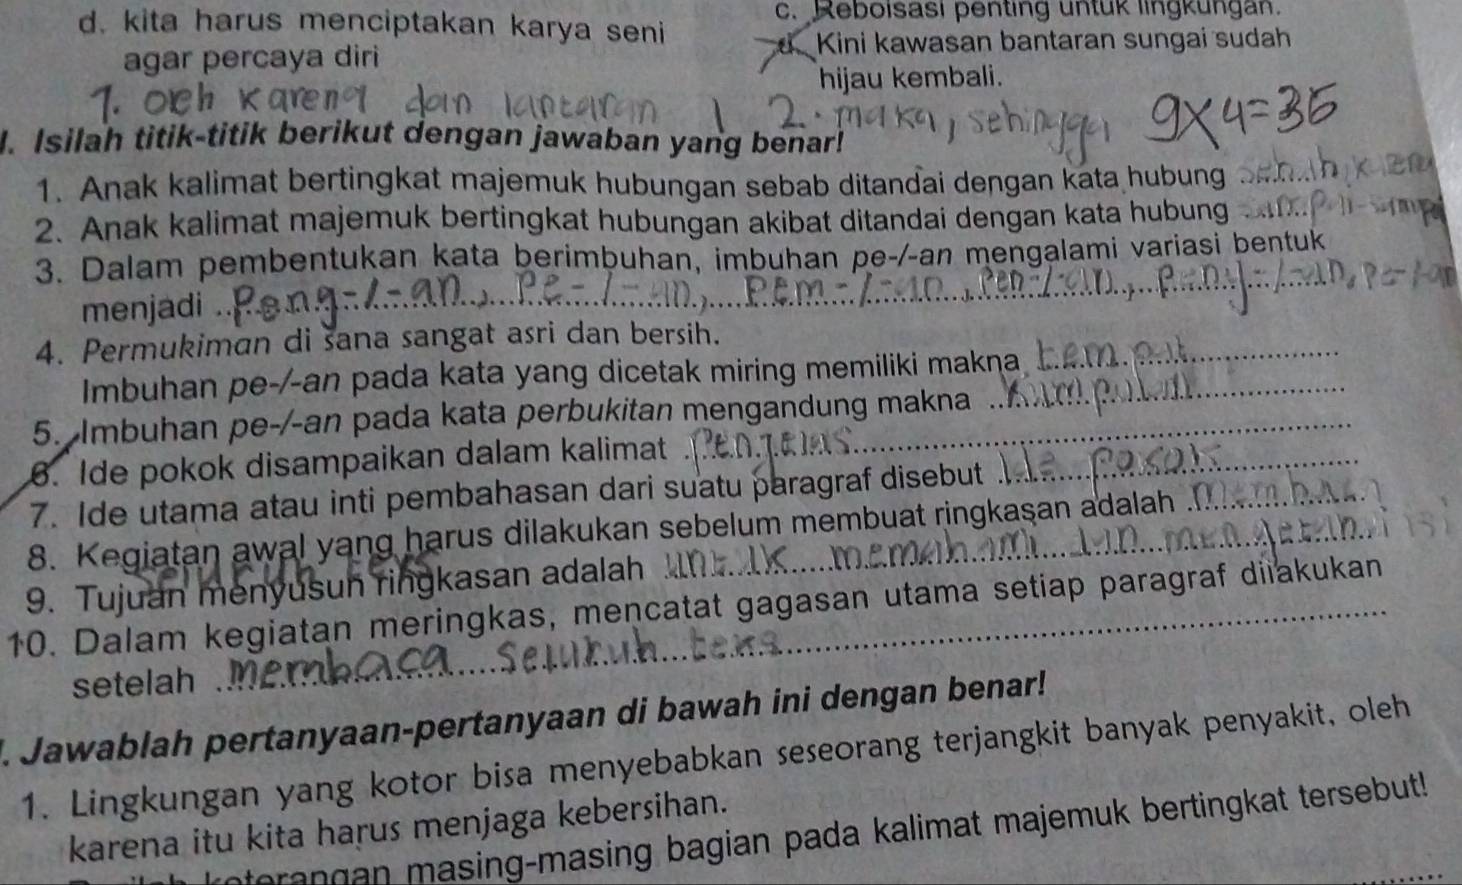 d. kita harus menciptakan karya seni
agar percaya diri
c. Reboisasi penting untuk lingkungan.
Kini kawasan bantaran sungai sudah
hijau kembali.
1. oeh karena dan lantaran 2. maka, sehingga 9x4=36
I. Isilah titik-titik berikut dengan jawaban yang benar!
1. Anak kalimat bertingkat majemuk hubungan sebab ditandai dengan kata hubung
2. Anak kalimat majemuk bertingkat hubungan akibat ditandai dengan kata hubung
3. Dalam pembentukan kata berimbuhan, imbuhan pe-/-an mengalami variasi bentuk
menjadi .. peng-/-an, pe-/-an, pem-/-an, pen-/-an, peny-/-an, pe-/-an
4. Permukiman di sana sangat asri dan bersih.
Imbuhan pe-/-an pada kata yang dicetak miring memiliki makna tempat
5. Imbuhan pe-/-an pada kata perbukitan mengandung makna .. kumpulan
6. Ide pokok disampaikan dalam kalimat . penjelas
7. Ide utama atau inti pembahasan dari suatu paragraf disebut . Ide pokok
8. Kegiatan awal yang harus dilakukan sebelum membuat ringkasan adalah . membaca
seluruh teks
9. Tujuan menyusun ringkasan adalah untuk memahami dan mengetahui isi
10. Dalam kegiatan meringkas, mencatat gagasan utama setiap paragraf dilakukan
setelah . membaca seluruh teks
. Jawablah pertanyaan-pertanyaan di bawah ini dengan benar!
1. Lingkungan yang kotor bisa menyebabkan seseorang terjangkit banyak penyakit, oleh
karena itu kita harus menjaga kebersihan.
keterangan masing-masing bagian pada kalimat majemuk bertingkat tersebut!